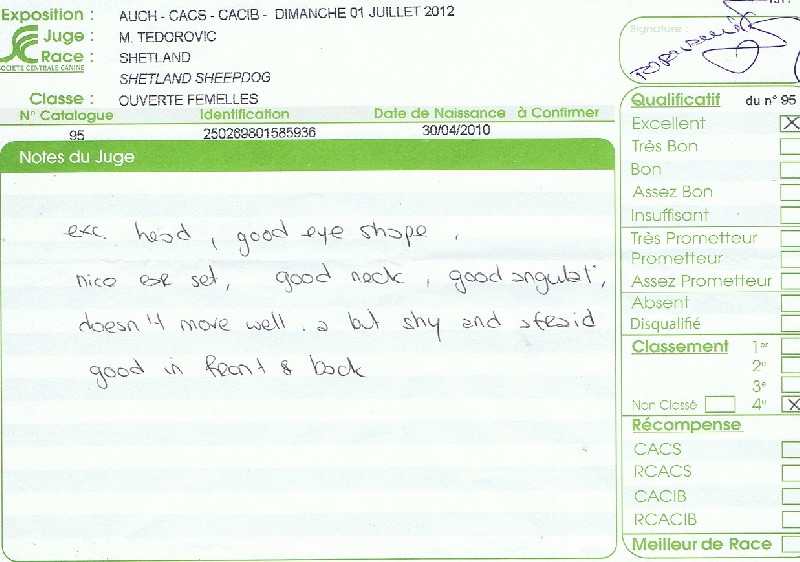 Exposition : AUCH - CACS - CACIB - DIMANCHE 01 JUILLET 2012
Juge : M. TEDOROVIC
Race : SHETLAND
SOCIETE CENTRALE CANINE
SHETLAND SHEEPDOG
Classe : OUVERTE FEMELLES
N° Catalogue Identification Date de Naissance à Confirmer
95 250269801585936 30/04/2010
Notes du Juge
exc. head, good eye shape,
nice ear set, good neck, good angulat',
doesn't move well. a but shy and afraid
good in front & back
Signature :
Qualificatif du n° 95
Excellent X
Très Bon
Bon
Assez Bon
Insuffisant
Très Prometteur
Prometteur
Assez Prometteur
Absent
Disqualifié
Classement 1er
2e
3e
Non Classé 4e X
Récompense
CACS
RCACS
CACIB
RCACIB
Meilleur de Race